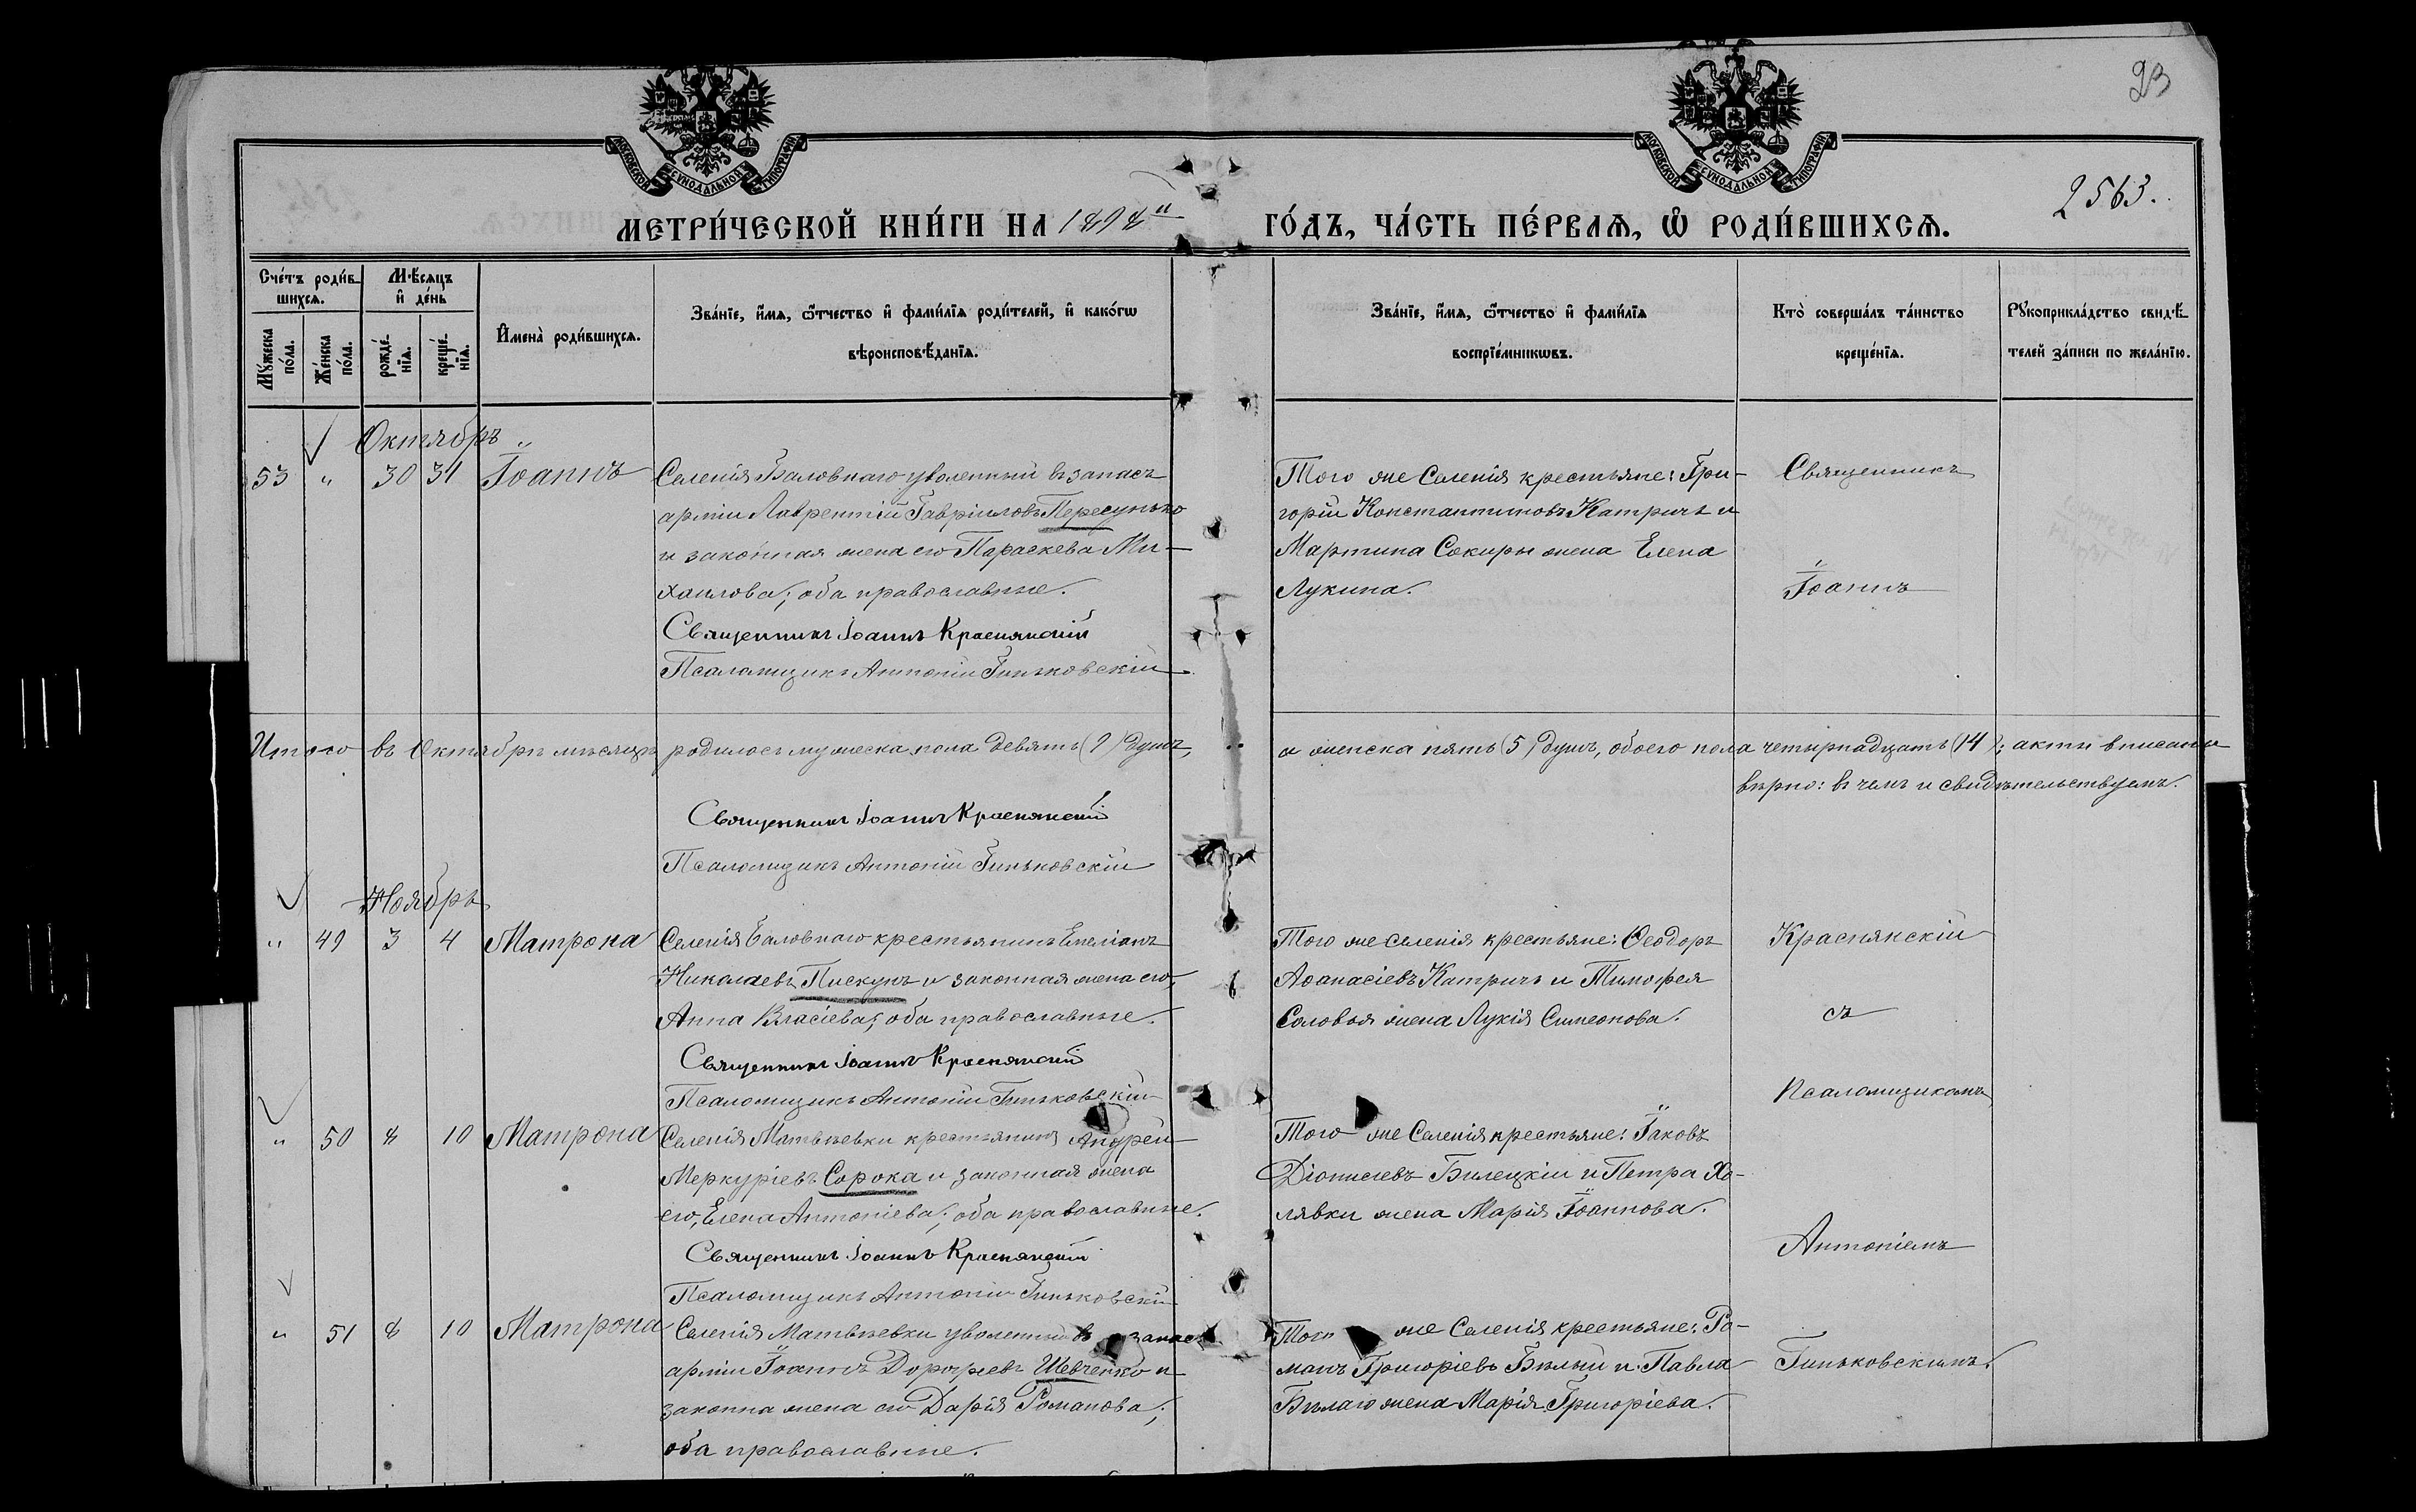 23
2563.
МОСКОВСКОЙ СѴНОДАЛЬНОЙ ТИПОГРАФІИ
МОСКОВСКОЙ СѴНОДАЛЬНОЙ ТИПОГРАФІИ
МЕТРИ́ЧЕСКОЙ КНИ́ГИ НА 1898й ГО́ДЪ, ЧА́СТЬ ПЕ́РВАѦ, Ѡ҆ РОДИ́ВШИХСѦ.
Сче́тъ роди́в-
шихсѧ.
Мꙋ́жеска по́ла.
Же́нска по́ла.
Мѣ́сѧцъ
и҆ де́нь
рожде́нїѧ.
креще́нїѧ.
И҆мена̀ роди́вшихсѧ.
Зва́нїе, и҆́мѧ, ѻ҆́тчество и҆ фами́лїѧ роди́телей, и҆ како́гѡ
вѣроисповѣ́данїѧ.
Зва́нїе, и҆́мѧ, ѻ҆́тчество и҆ фами́лїѧ
воспрїе́мникѡвъ.
Кто̀ соверша́лъ та́инство
креще́нїѧ.
Рꙋкоприкла́дство свидѣ́-
телей за́писи по жела́нїю.
Октябрь
53 " 30 31 Іоаннъ
Селенія Баловнаго уволенный въ запасъ
арміи Лаврентій Гавріиловъ Пересунько
и законная жена его Параскева Ми-
хаилова; оба православные.
Священникъ Іоаннъ Краснянскій
Псаломщикъ Антоній Гиньковскій
Того же Селенія крестьяне: Гри-
горій Константиновъ Катричъ и
Мартина Сокиры жена Елена
Лукина.
Священникъ
Іоаннъ
Итого въ Октябрѣ мѣсяцѣ родилось мужеска пола девять (9) душъ, а женска пять (5) душъ, обоего пола четырнадцать (14); акты вписаны
вѣрно: въ чемъ и свидѣтельствуемъ.
Священникъ Іоаннъ Краснянскій
Псаломщикъ Антоній Гиньковскій
Ноябрь
" 49 3 4 Матрона
Селенія Баловнаго крестьянинъ Емеліанъ
Николаевъ Пискунъ и законная жена его,
Анна Власіева; оба православные.
Священникъ Іоаннъ Краснянскій
Псаломщикъ Антоній Гиньковскій
Того же селенія крестьяне: Ѳеодоръ
Аѳанасіевъ Катричъ и Тимофея
Соловья жена Лукія Симеонова.
Краснянскій
съ
Псаломщикомъ
" 50 8 10 Матрона
Селенія Матвѣевки крестьянинъ Андрей
Меркуріевъ Сорока и законная жена
его, Елена Антоніева; оба православные.
Священникъ Іоаннъ Краснянскій
Псаломщикъ Антоній Гиньковскій
Того же Селенія крестьяне: Іаковъ
Діонисіевъ Билецкій и Петра Хо-
лявки жена Марія Іоаннова.
Антоніемъ
" 51 8 10 Матрона
Селенія Матвѣевки уволенный въ запас
арміи Іоаннъ Дороѳіевъ Шевченко и
законна жена его Дарія Романова;
оба православные.
Того же Селенія крестьяне: Ро-
манъ Григоріевъ Бѣлый и Павла
Бѣлаго жена Марія Григоріева.
Гиньковскимъ.